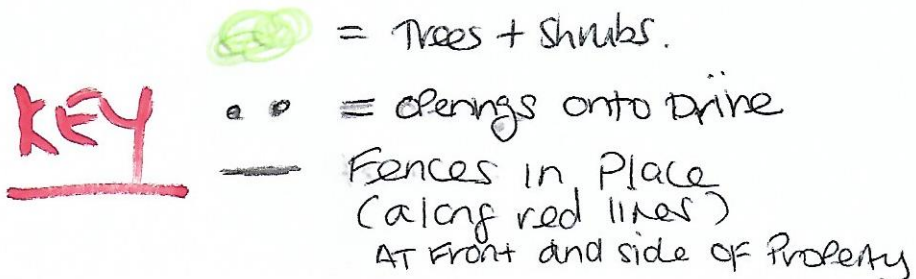 = Trees + Shrubs.
KEY
= Openings onto Drive
Fences in Place
(along red lines)
AT Front and side of Property